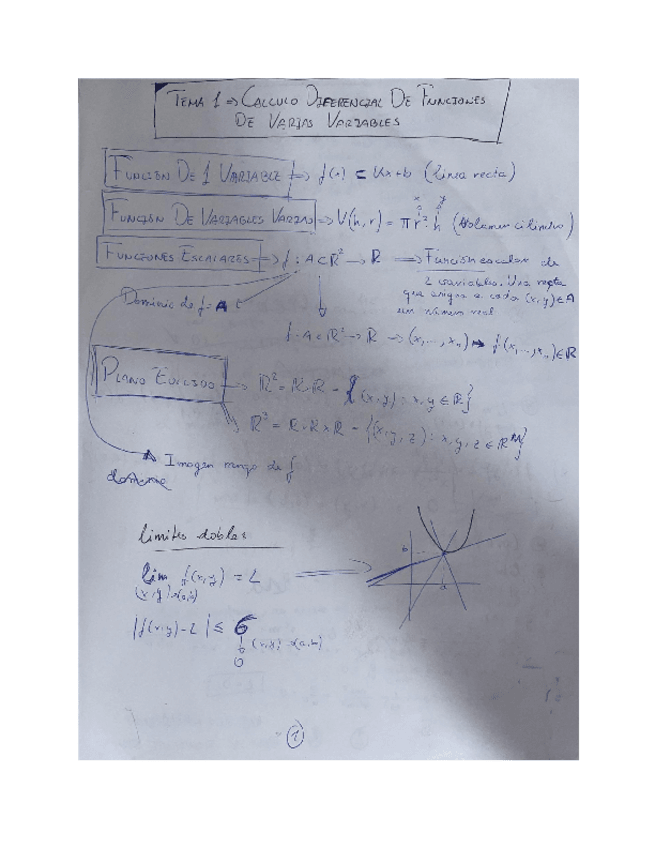 TEMA 1 => CALCULO DIFERENCIAL DE FUNCIONES
DE VARIAS VARIABLES
FUNCION DE 1 VARIABLE => f(x) = Ux+b (linea recta)
x y
FUNCION DE VARIABLES VARIAS => V(h,r) = π r² · h (Volumen cilindro)
FUNCIONES ESCALARES => f: A⊂R² → R => Función escalar de
2 variables. Una regla
Dominio de f = A
que asigna a cada (x,y)∈A
un número real
f: A⊂R² → R → (x,...,xn) → f(x,...,xn)∈R
PLANO → R² = R×R = {(x,y): x,y ∈ R}
R³ = R×R×R = {(x,y,z): x,y,z ∈ R}
Imagen rango de f
limites dobles
lim f(x,y) = L
(x,y)→(a,b)
b
a
|f(x,y)-L| ≤ 6
↓ (x,y)→(a,b)
0
1